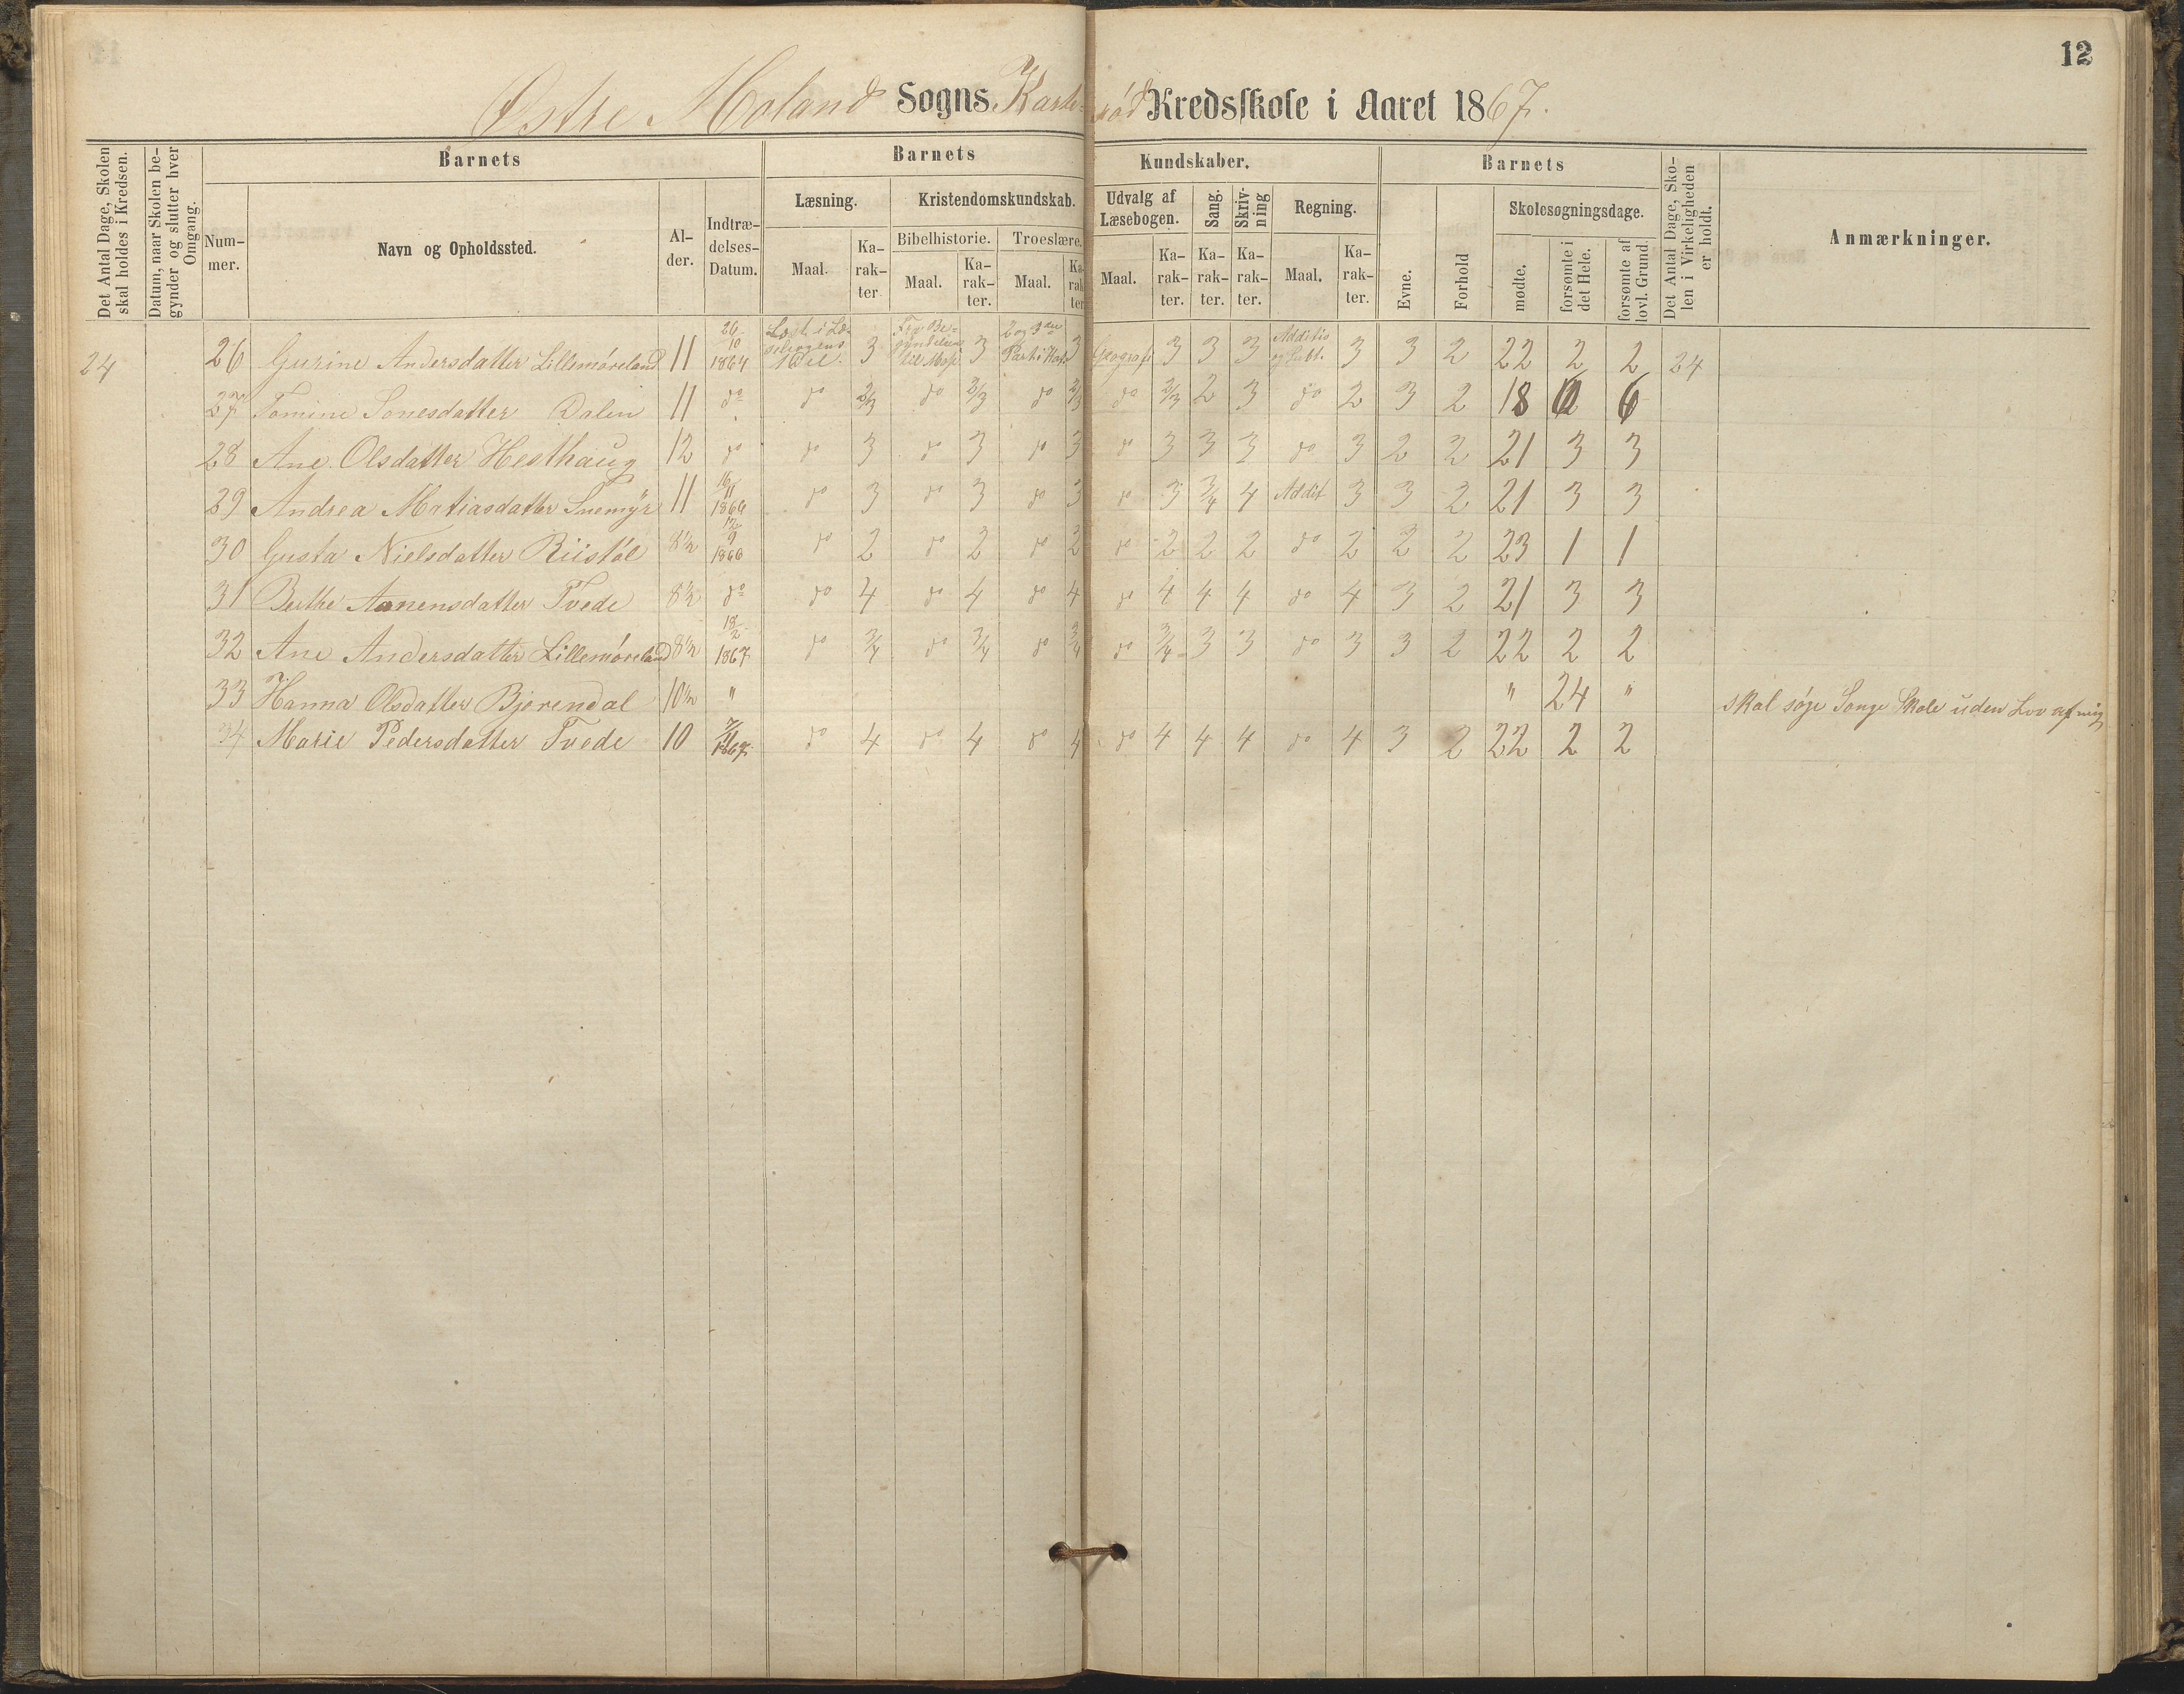 12
Østre Moland Sogns Kredsskole i Aaret 1867.
Det Antal Dage, Skolen skal holdes i Kredsen.
Datum, naar Skolen begynder og slutter hver Omgang.
Barnets
Nummer.
Navn og Opholdssted.
Alder.
Indtrædelses-Datum.
Barnets Kundskaber.
Læsning.
Maal.
Karakter
Kristendomskundskab.
Bibelhistorie.
Maal.
Karakter.
Troeslære.
Maal.
Karakter
Udvalg af Læsebogen.
Maal.
Karakter.
Sang.
Karakter.
Skrivning
Karakter.
Regning.
Maal.
Karakter.
Barnets
Evne.
Forhold
Skolesøgningsdage.
mødte.
forsømte i det Hele.
forsømte af lovl. Grund.
Det Antal Dage, Skolen i Virkeligheden er holdt.
Anmærkninger.
24 26 Gurine Andersdatter Lillemøreland 11 26/10 1864 3 3 2 og 3 3 Geografi 3 3 3 Additio og Subt. 3 3 2 22 2 2 24
27 Tomine Sonesdatter Dalen 11 do do 2/3 do 2/3 do 2/3 do 2/3 2 3 do 2 3 2 18 6 6
28 Ane Olsdatter Hesthaug 12 do do 3 do 3 do 3 do 3 3 3 do 3 2 2 21 3 3
29 Andrea Matiasdatter 11 16/11 do 3 do 3 do 3 do 3 3/4 4 Addit 3 3 2 21 3 3
30 Gusta Nielsdatter Riistøl 8½ 1866 do 2 do 2 do 2 do 2 2 2 do 2 2 2 23 1 1
31 Berthe Aanensdatter Tvede 8½ do do 4 do 4 do 4 do 4 4 4 do 4 3 2 21 3 3
32 Ane Andersdatter Lillemøreland 8½ 18/2 1867 do 3/4 do 3/4 do 3/4 do 3/4 3 3 do 3 3 2 22 2 2
33 Hanna Olsdatter Bjorendal 10½ " " 24 " skal søge Songe Skole uden Lov af mig
34 Marie Pedersdatter Tvede 10 7/11 1867 do 4 do 4 do 4 do 4 4 4 do 4 3 2 22 2 2